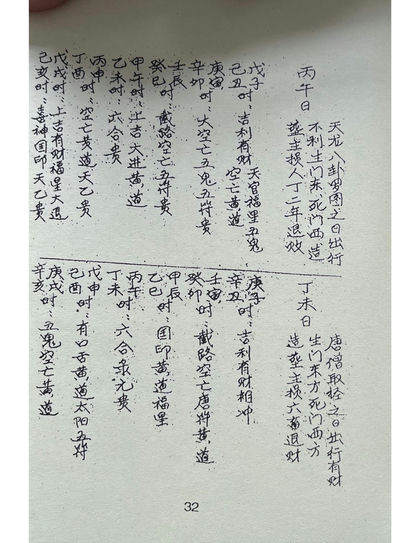 丙午日
天龙八卦图之日出行
不利生门东死门西造
葬主损人丁二年退败
戊子时：吉利有财 天官福星五鬼
己丑时：吉利有财 空亡黄道
庚寅时
辛卯时：大空亡五鬼五符贵
壬辰
癸巳时：截路空亡五符贵
甲午时：上吉大进黄道
乙未时：六合贵
丙申
丁酉时：空亡黄道天乙贵
戊戌时：上吉有财福星大退
己亥时：喜神国印天乙贵
丁未日
唐僧取经之日出行有财
生门东方死门西方
造葬主损六畜退财
庚子
辛丑时：吉利有财相冲
壬寅
癸卯时：截路空亡唐符黄道
甲辰
乙巳时：国印黄道福星
丙午
丁未时：六合贵
戊申
己酉时：有口舌黄道太阳五符
庚戌
辛亥时：五鬼空亡黄道
32